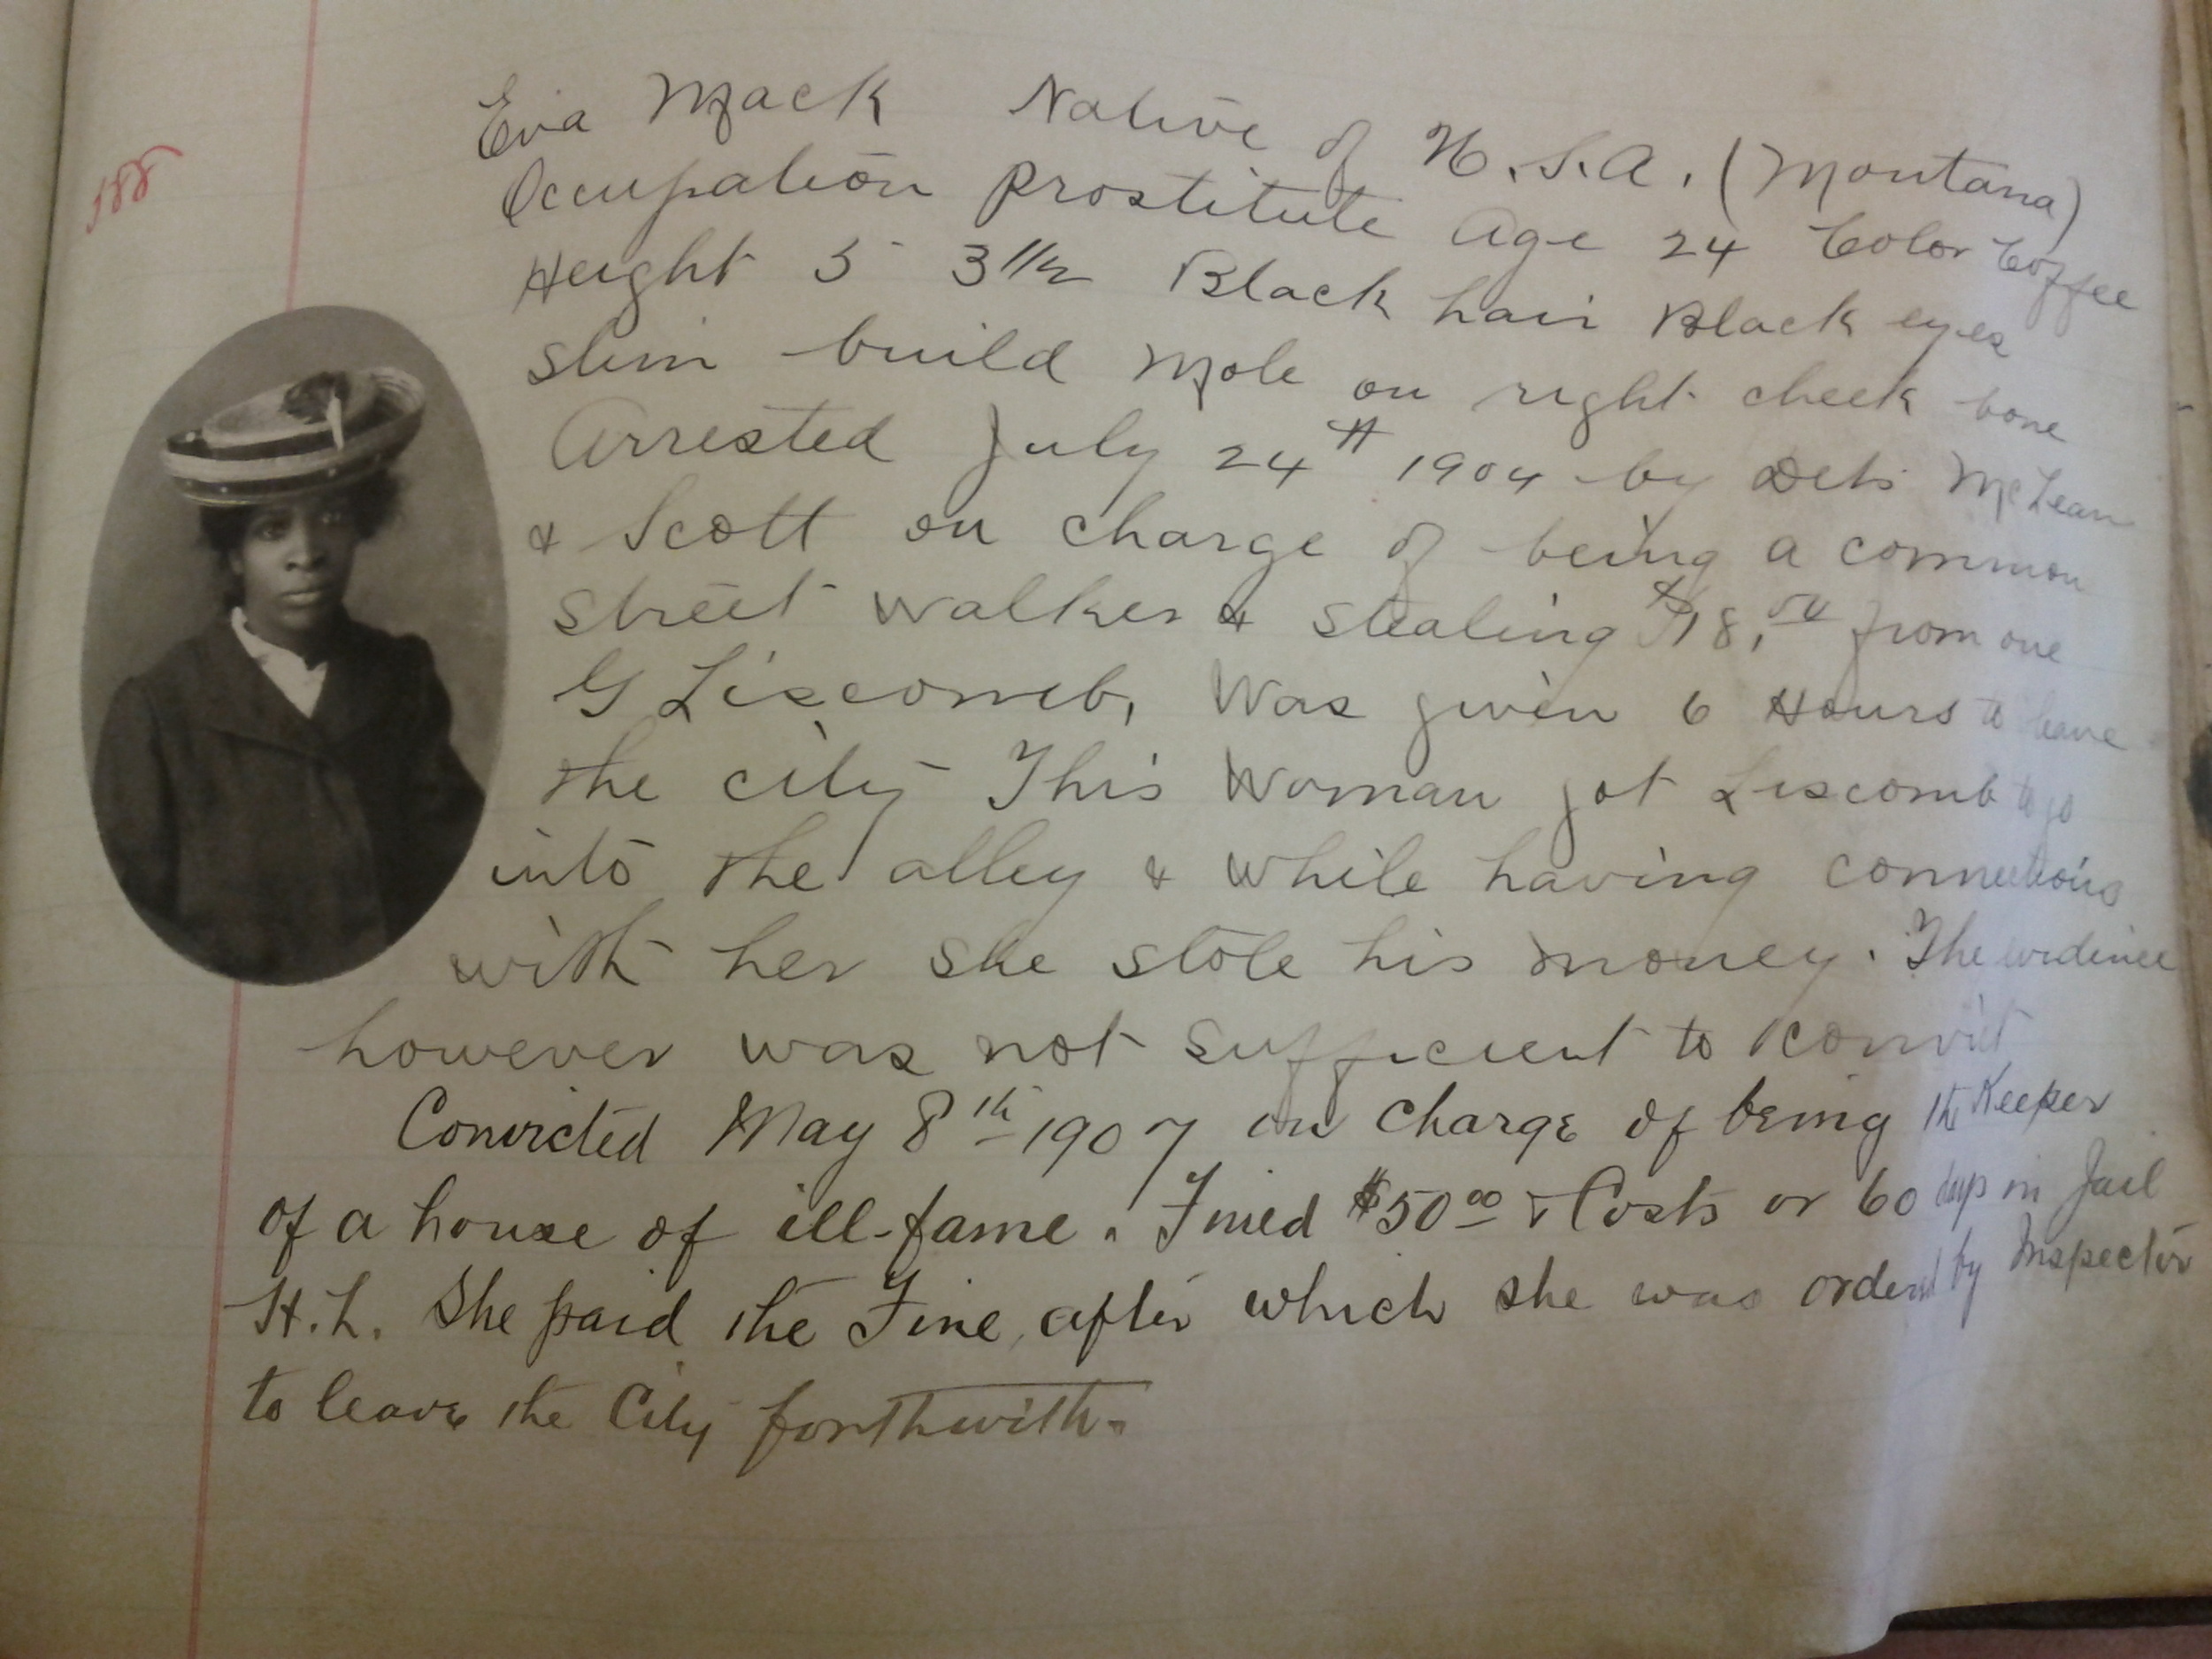 188
Eva Mack Native of U.S.A. (Montana)
Occupation prostitute Age 24 Color Coffee
Height 5 3 1/2 Black hair Black eyes
Slim build Mole on right cheek bone
Arrested July 24th 1904 by Dets McLean
& Scott on charge of being a common
street walker & stealing $18.00 from one
G Liscomb, Was given 6 Hours to leave
the city This Woman got Liscomb to go
into the alley & while having connections
with her she stole his money. The evidence
however was not sufficient to convict
Convicted May 8th 1907 on charge of being the Keeper
of a house of ill-fame. Fined $50.00 & Costs or 60 days in Jail
H.L. She paid the Fine, after which she was ordered by Inspector
to leave the City forthwith.